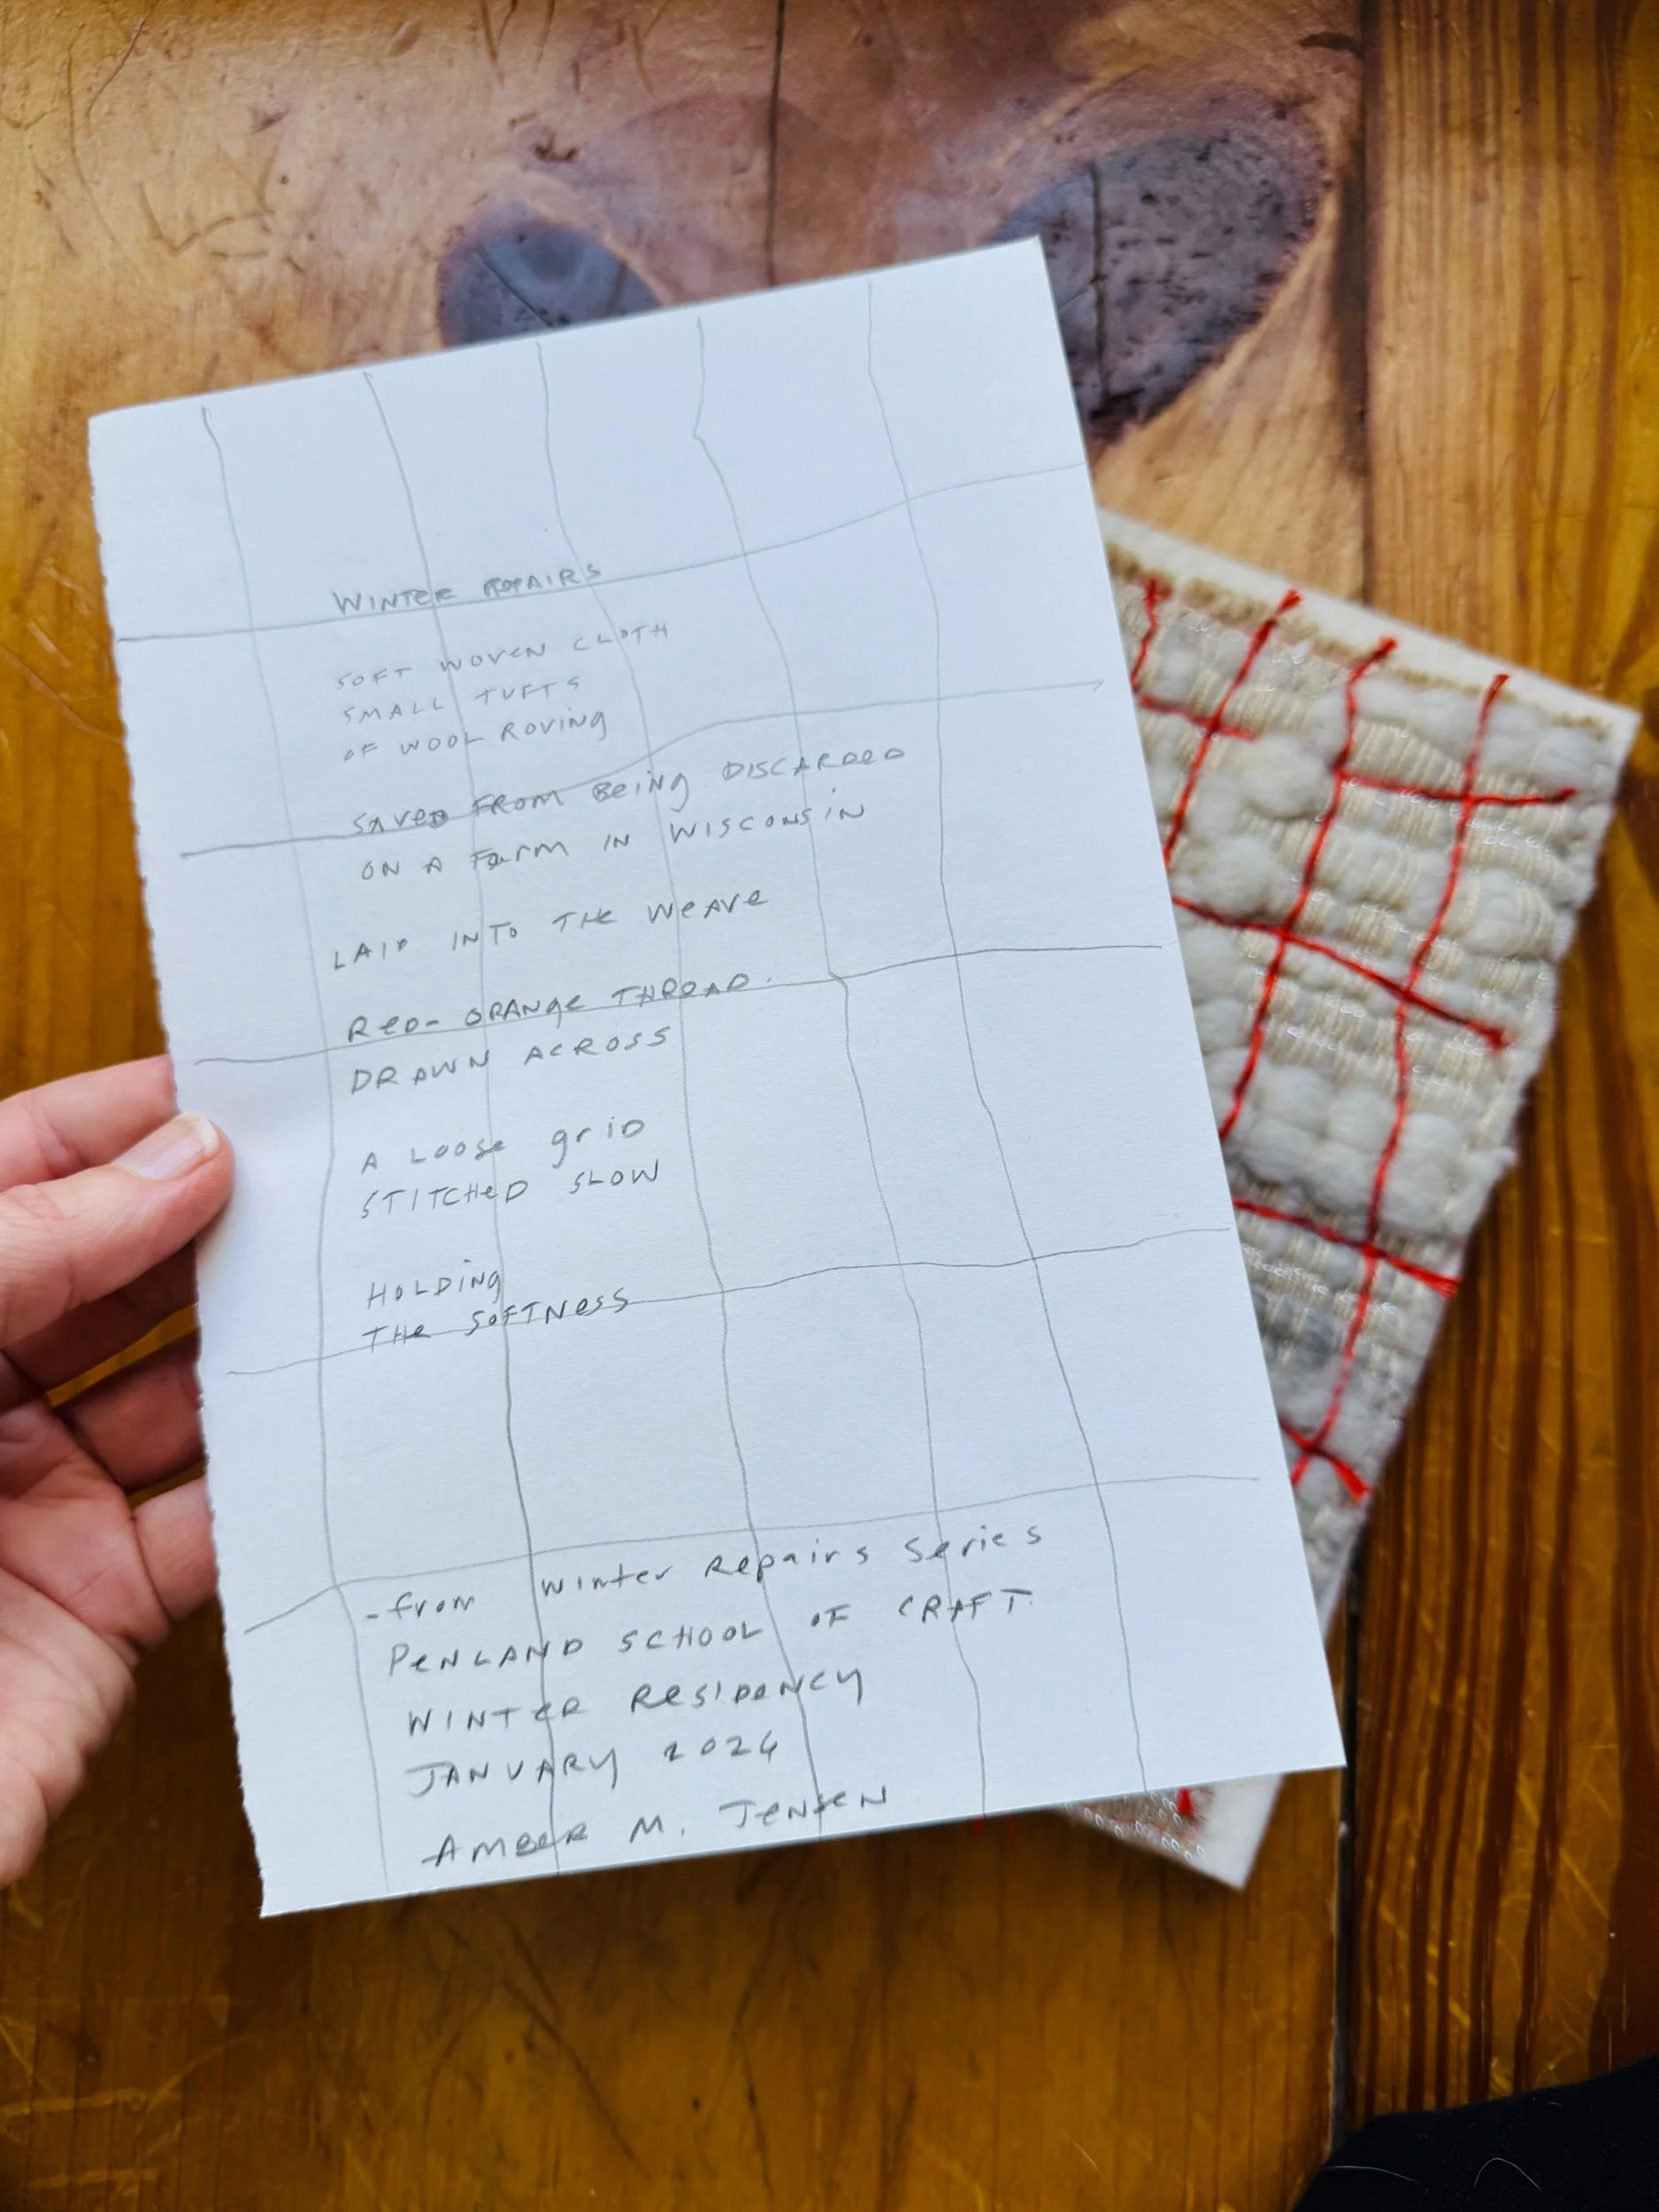 WINTER REPAIRS
SOFT WOVEN CLOTH
SMALL TUFTS
OF WOOL ROVING
SAVED FROM BEING DISCARDED
ON A FARM IN WISCONSIN
LAID INTO THE WEAVE
RED-ORANGE THREAD.
DRAWN ACROSS
A LOOSE grID
STITCHED SLOW
HOLDING
THE SOFTNESS
-from winter Repairs series
PENLAND SCHOOL OF CRAFT.
WINTER RESIDENCY
JANUARY 2026
AMBER M. JENSEN